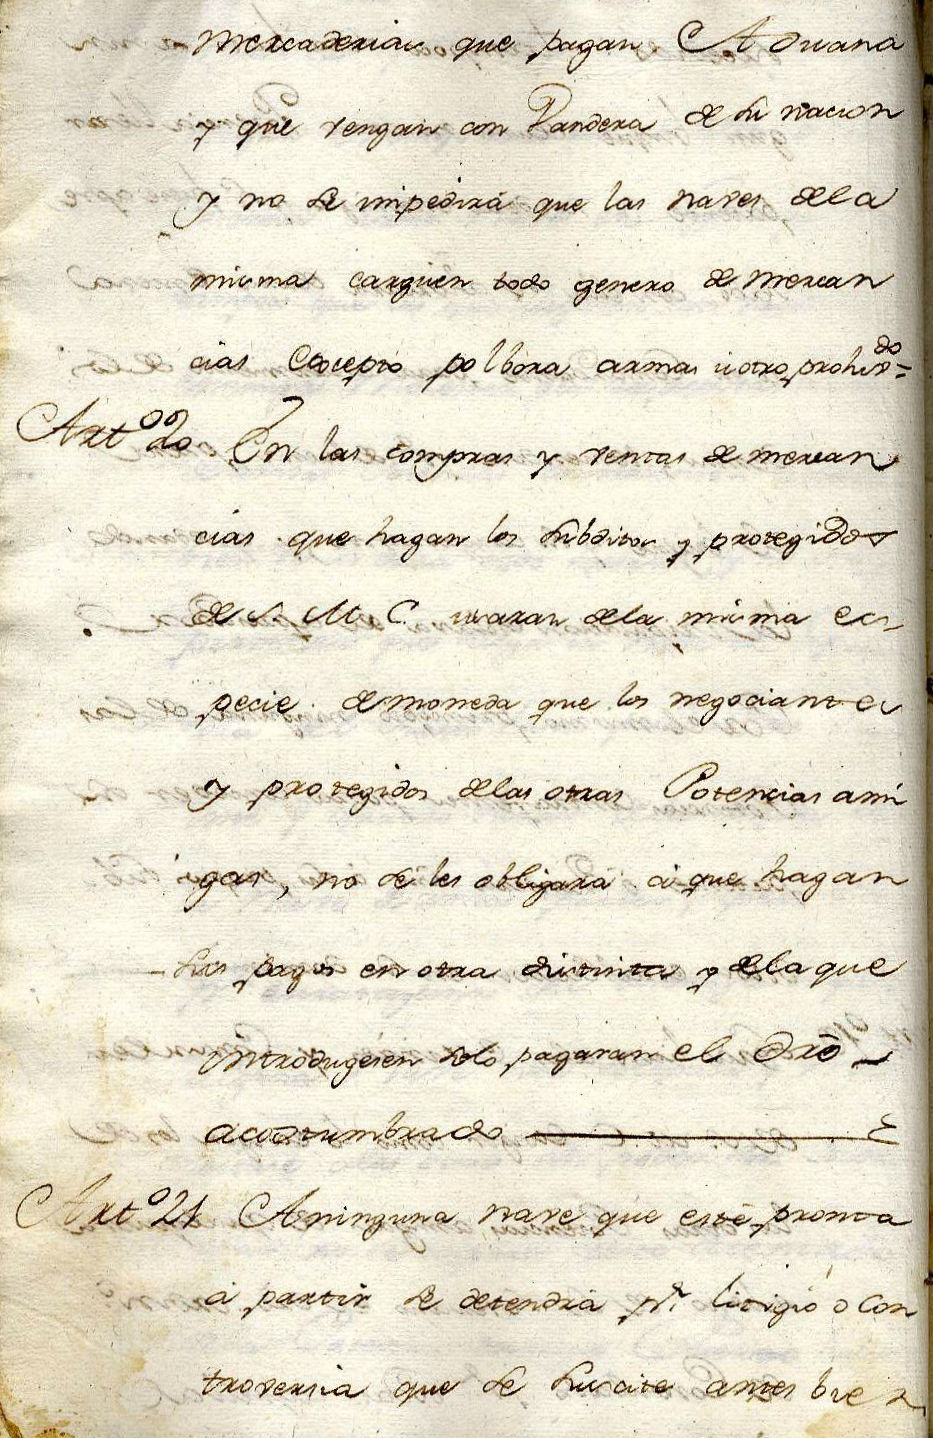 mercaderias que pagan Aduana
y que vengan con Vandera de su nacion
y no se impedirá que las naves dela
misma carguen todo genero de mercan
cias Ecsepto polbora armas ú otro prohivdo=
Arto 20 En las compras y ventas de mercan
cias que hagan los subditos y protegidos
de S. M. C. usaran dela misma es-
pecie de moneda que los negociantes
y protegidos delas otras Potencias ami
gas, no se les obligará á que hagan
sus pagos en otra distinta y dela que
introdugesen solo pagaran el dro
acostumbrado
Arto 21 Aninguna nave que esté pronta
á partir se detendrá pr litigio ó con
troversia que se suscite antes bien